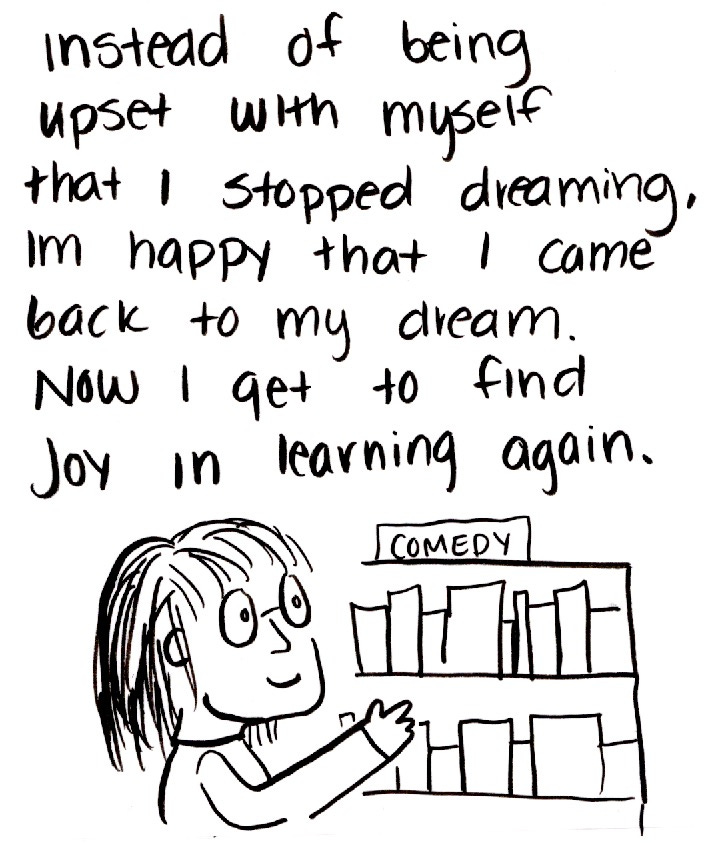 instead of being
upset with myself
that I stopped dreaming,
Im happy that I came
back to my dream.
Now I get to find
Joy in learning again.
COMEDY